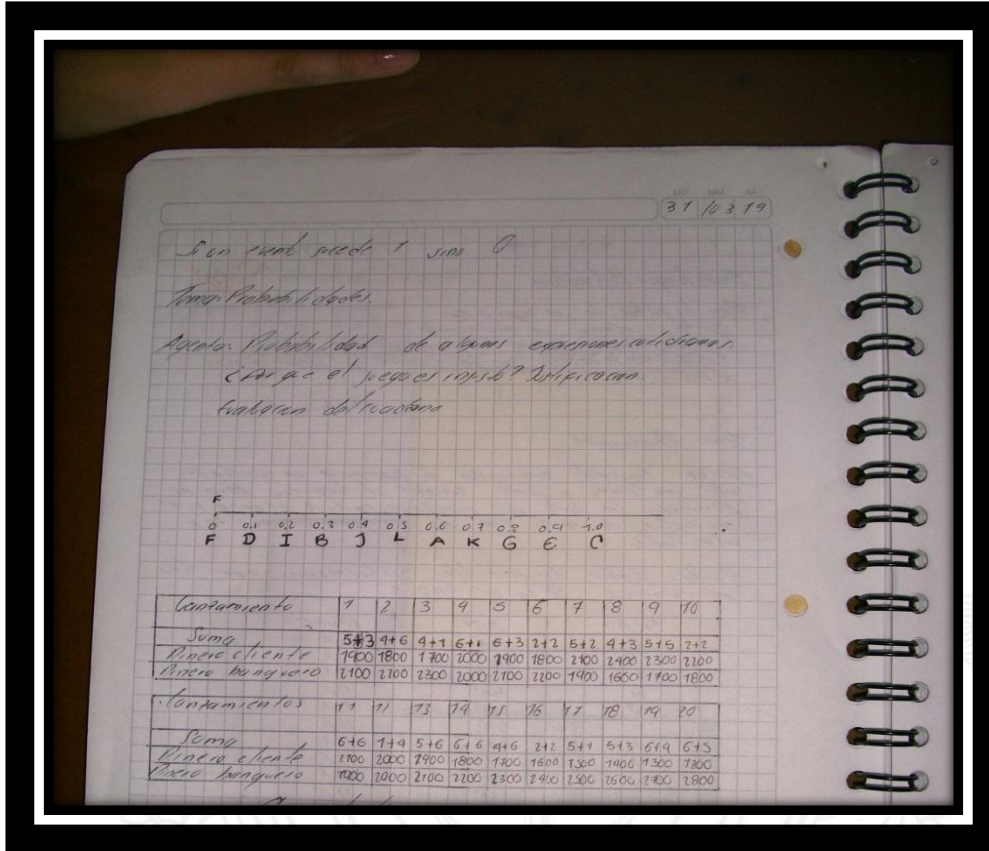 31 03 19
Si un event sucede 1 sino 0
Tema: Probabilidades.
Agenda: Probabilidad de algunas expresiones cotidianas.
¿Por que el juego es injusto? Justificacion.
Evaluacion
F
0 0.1 0.2 0.3 0.4 0.5 0.6 0.7 0.8 0.9 1.0
F D I B J L A K G E C
Lanzamiento 1 2 3 4 5 6 7 8 9 10
Suma 5+3 4+6 4+1 6+1 6+3 2+2 5+2 4+3 5+5 2+2
Dinero cliente 1900 1800 1700 2000 1900 1800 2100 2400 2300 2200
Dinero banquero 2100 2200 2300 2000 2100 2200 1900 1600 1700 1800
Lanzamientos 11 11 13 14 15 16 17 18 19 20
Suma 6+6 1+4 5+6 6+6 4+6 2+2 5+1 5+3 6+4 6+5
Dinero cliente 2100 2000 1900 1800 1700 1600 1500 1400 1300 1200
Dinero banquero 1900 2000 2100 2200 2300 2400 2500 2600 2700 2800